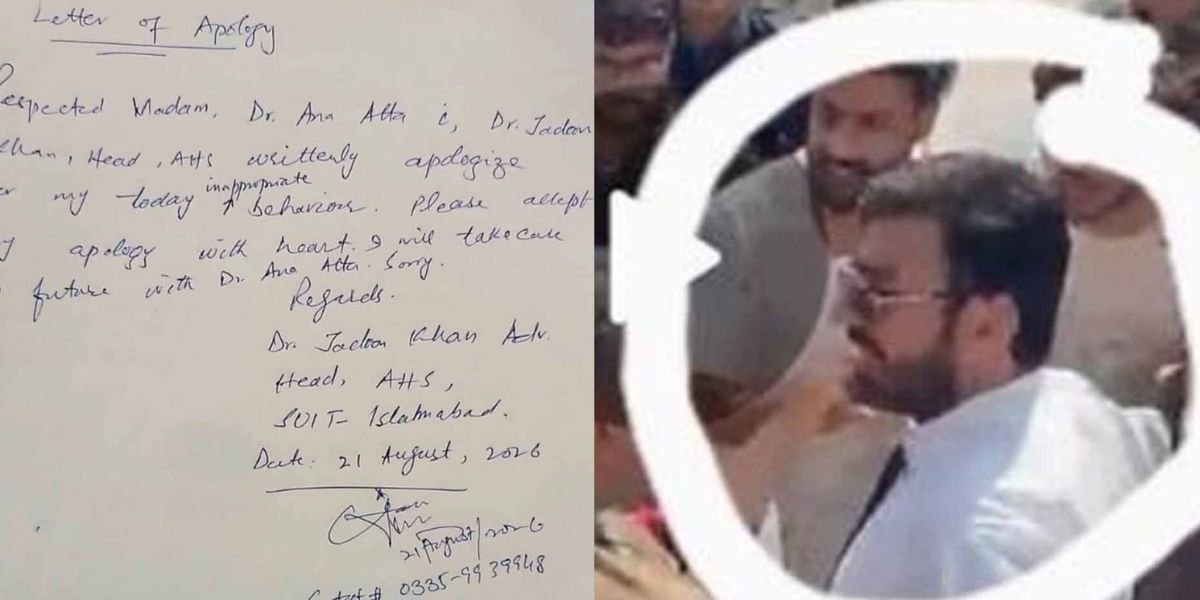 Letter of Apology
Respected Madam, Dr. Ana Atta i, Dr. Jadoon
Khan, Head, AHS writtenly apologize
my today inappropriate behaviour. Please accept
apology with heart. I will take care
future with Dr. Ana Atta. Sorry.
Regards.
Dr. Jadoon Khan Adv.
Head, AHS,
SUIT- Islamabad.
Date: 21 August, 2026
21/August/2026
Contact # 0335-9939948